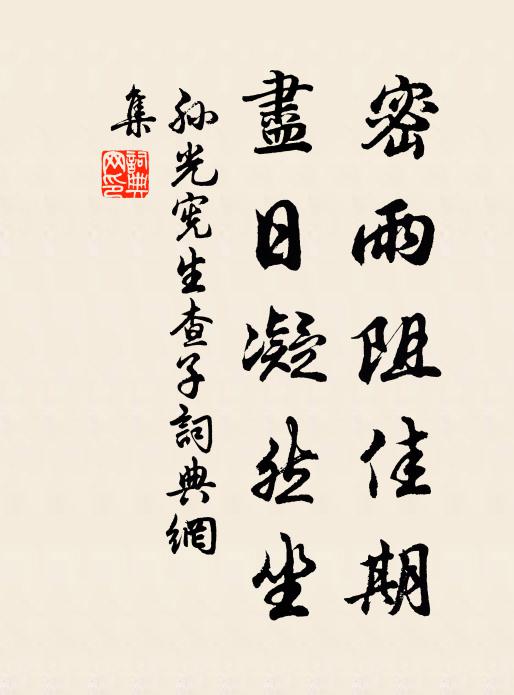 密雨阻佳期
盡日凝然坐
孫光憲生查子詞典網
集
詞典網印